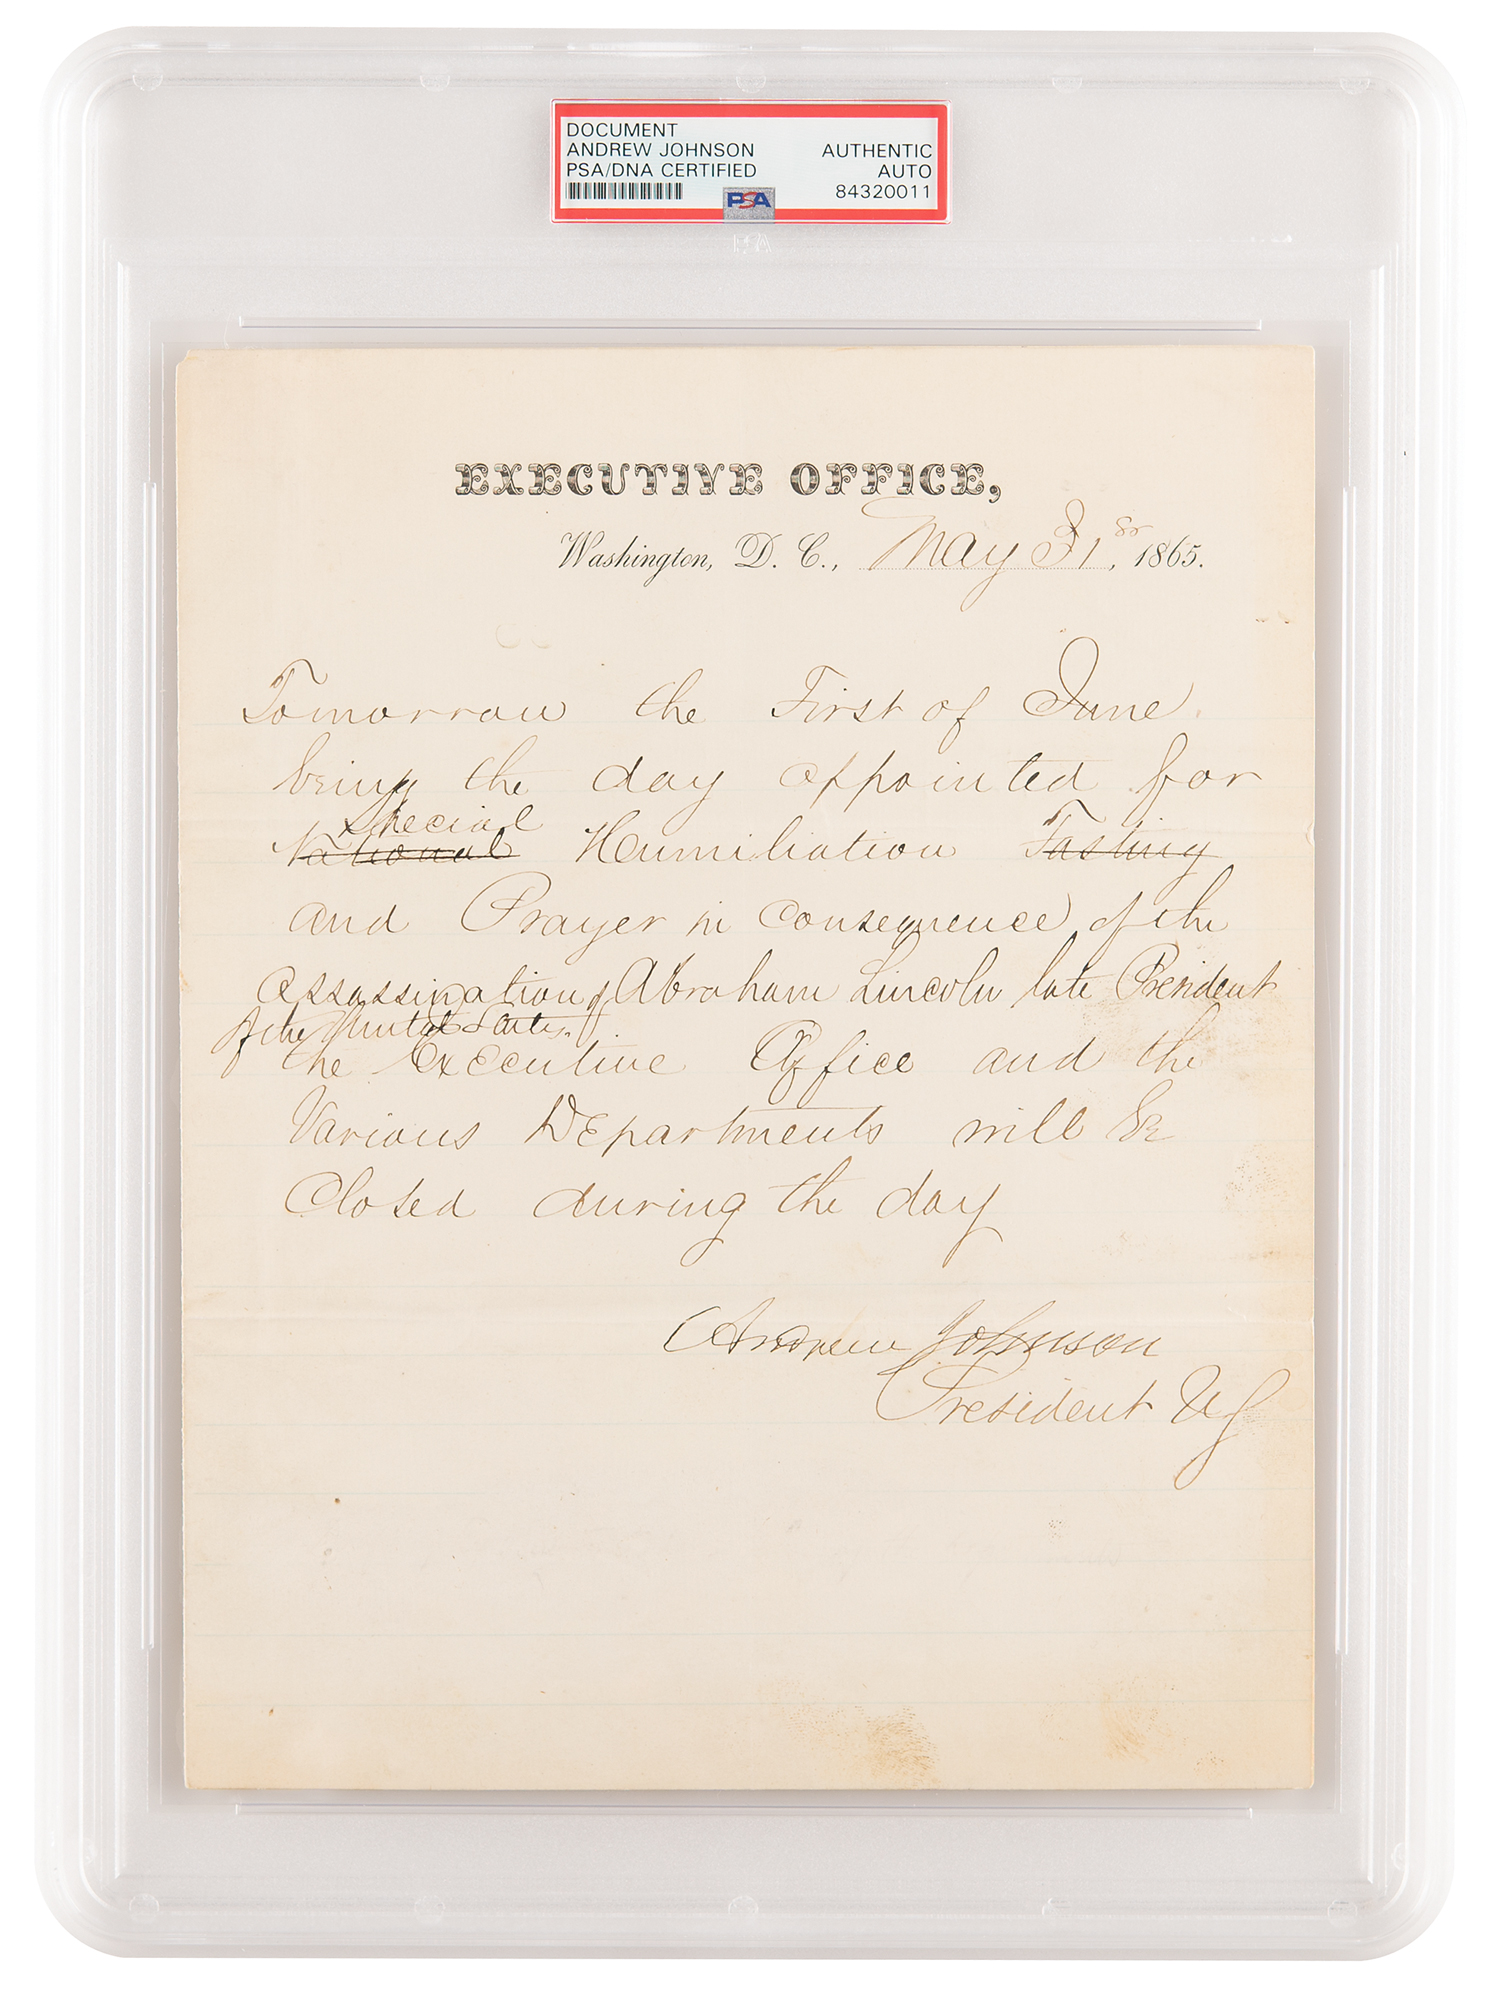 DOCUMENT
ANDREW JOHNSON
PSA/DNA CERTIFIED
AUTHENTIC
AUTO
84320011
PSA
PSA
EXECUTIVE OFFICE,
Washington, D. C., May 31st, 1865.
Tomorrow the First of June
being the day appointed for
Special
National Humiliation Fasting
and Prayer in consequence of the
assassination of Abraham Lincoln late President
of the United States.
the Executive Office and the
Various Departments will be
Closed during the day
Andrew Johnson
President US